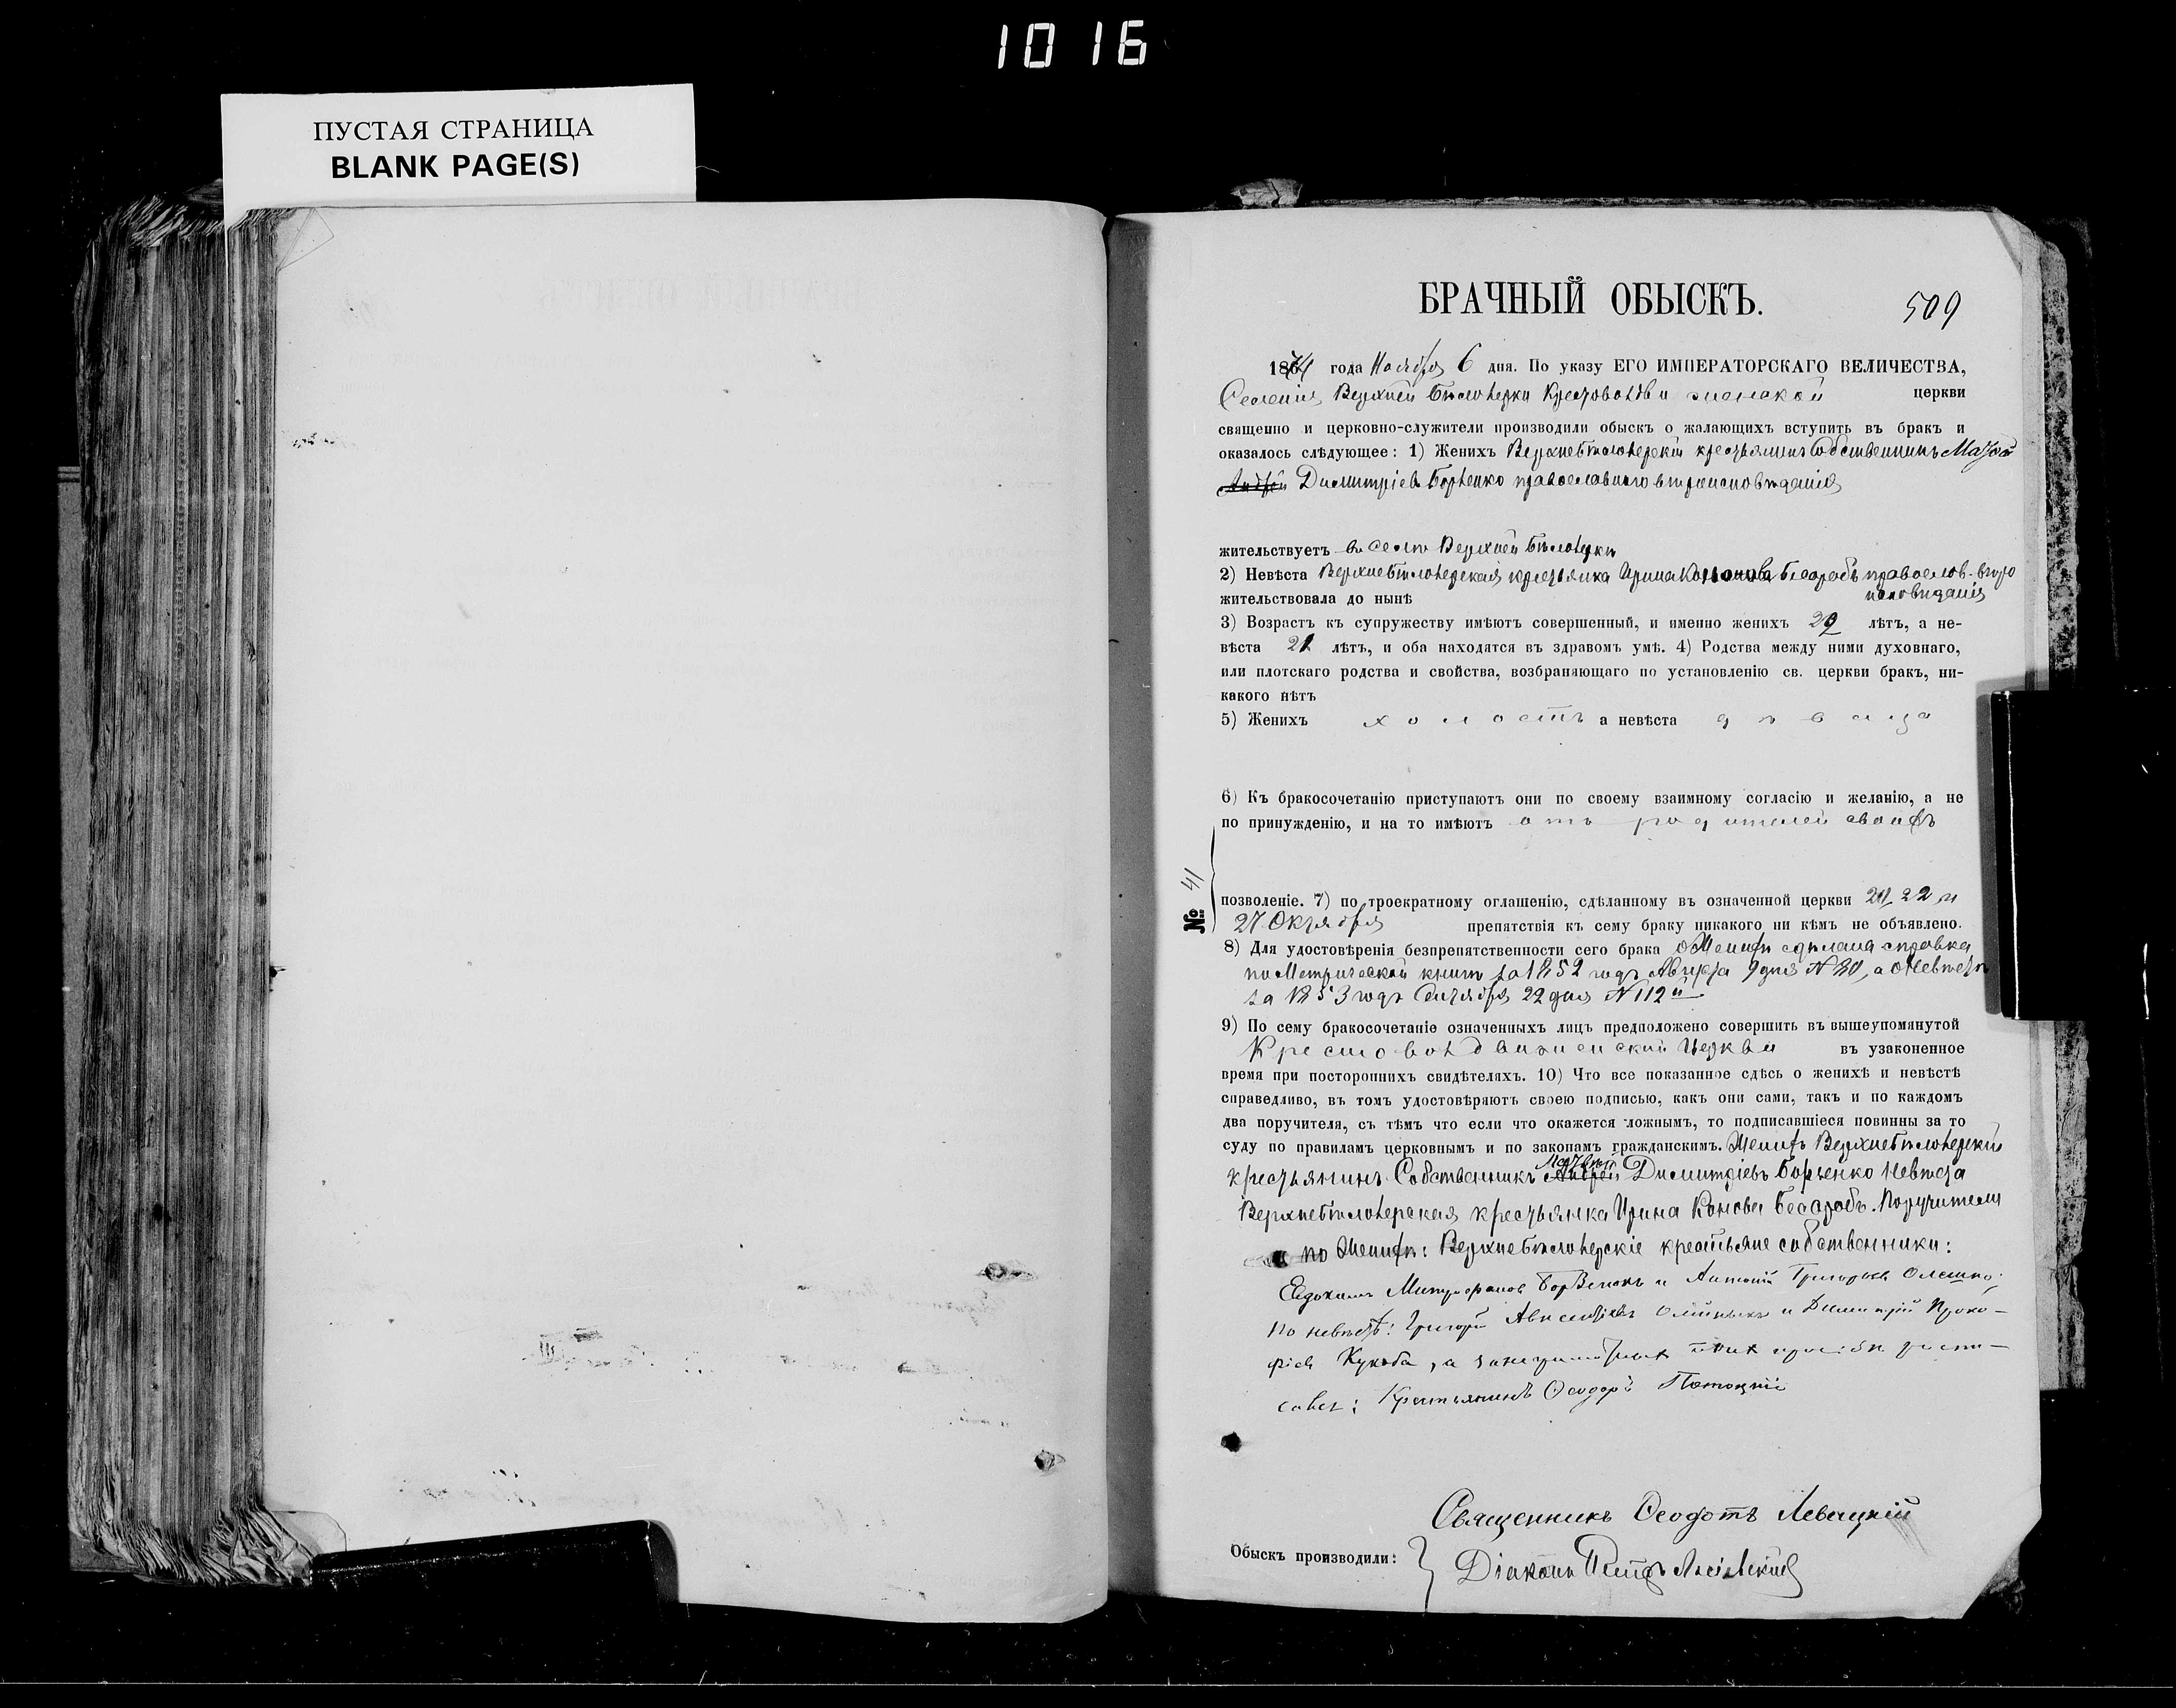 1016
ПУСТАЯ СТРАНИЦА
BLANK PAGE(S)
БРАЧНЫЙ ОБЫСКЪ.
509
1874 года Ноября 6 дня. По указу ЕГО ИМПЕРАТОРСКАГО ВЕЛИЧЕСТВА,
Селенія Верхней Бѣлозерки церкви
священно и церковно-служители производили обыскъ о жалающихъ вступить въ бракъ и
оказалось слѣдующее: 1) Женихъ Верхнебѣлозерскій крестьянинъ Собственникъ
Димитріевъ православнаго вѣроисповѣданія
жительствуетъ въ селѣ Верхней Бѣлозеркѣ
2) Невѣста Верхнебѣлозерская крестьянка Ирина православ. вѣро
исповѣданія
жительствовала до нынѣ
3) Возрастъ къ супружеству имѣютъ совершенный, и именно женихъ лѣтъ, а не-
вѣста 21 лѣтъ, и оба находятся въ здравомъ умѣ. 4) Родства между ними духовнаго,
или плотскаго родства и свойства, возбраняющаго по установленію св. церкви бракъ, ни-
какого нѣтъ
5) Женихъ холостъ а невѣста дѣвица
6) Къ бракосочетанію приступаютъ они по своему взаимному согласію и желанію, а не
по принужденію, и на то имѣютъ отъ родителей своихъ
№ 41
позволеніе. 7) по троекратному оглашенію, сдѣланному въ означенной церкви 22 и
27 Октября препятствія къ сему браку никакого ни кѣмъ не объявлено.
8) Для удостовѣренія безпрепятственности сего брака о Женихѣ сдѣлана справка
по Метрической книгѣ за 1852 годъ Августа 9 дня № 80, а о Невѣстѣ
за 1853 годъ Сентября 22 дня № 112й
9) По сему бракосочетаніе означенныхъ лицъ предположено совершить въ вышеупомянутой
Крестовоздвиженской Церкви въ узаконенное
время при постороннихъ свидѣтеляхъ. 10) Что все показанное сдѣсь о женихѣ и невѣстѣ
справедливо, въ томъ удостовѣряютъ своею подписью, какъ они сами, такъ и по каждомъ
два поручителя, съ тѣмъ что если что окажется ложнымъ, то подписавшіеся повинны за то
суду по правиламъ церковнымъ и по законамъ гражданскимъ. Женихъ Верхнебѣлозерскій
крестьянинъ Собственникъ Димитріевъ Невѣста
Верхнебѣлозерская крестьянка Ирина Поручители
по Женихѣ: Верхнебѣлозерскіе крестьяне собственники:
Евдокимъ и Антоній
по невѣстѣ: Григорій и Димитрій Проко-
фіевъ а
Крестьянинъ Ѳеодоръ Потоцкій
Священникъ Ѳеодотъ Левицкій
Обыскъ производили:
Діаконъ Петръ